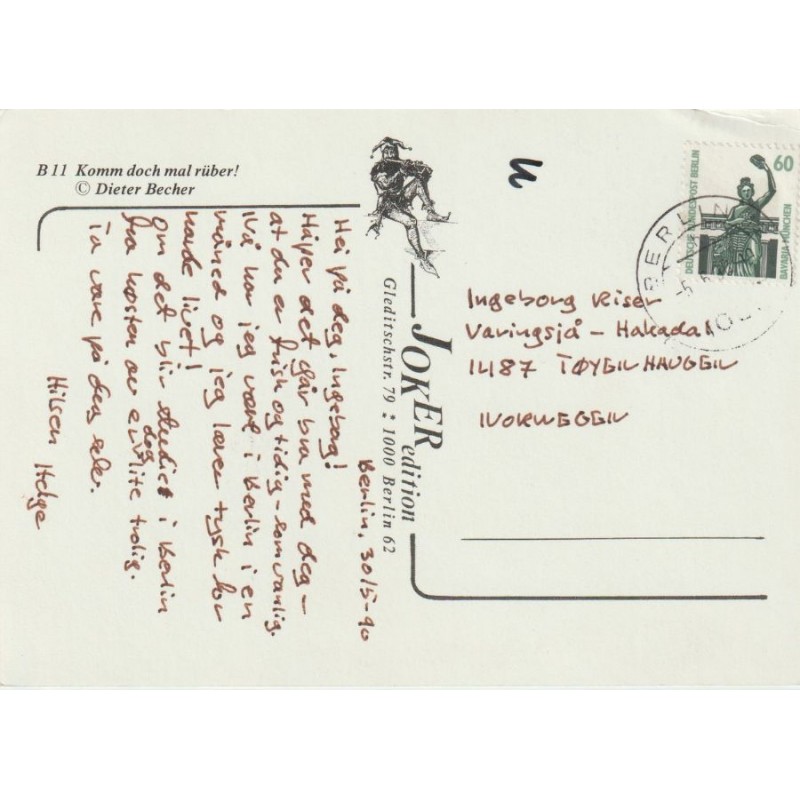 B 11 Komm doch mal rüber!
© Dieter Becher
JOKER edition
Gleditschstr. 79 : 1000 Berlin 62
Berlin, 30/5-90
Hei på deg, Ingeborg!
Håper det går bra med deg –
at du er frisk og tidig – som vanlig.
Nå har jeg vært i Berlin i en
måned og jeg lærer tysk for
harde livet!
Om det blir studier i Berlin
fra høsten av er dog lite trolig.
Ta vare på deg selv.
Hilsen Helge
u
60
DEUTSCHE BUNDESPOST BERLIN
BAVARIA MÜNCHEN
BERLIN
Ingeborg Riser
Varingsjå – Hakadal
1487 TØYENHAUGEN
NORWEGEN